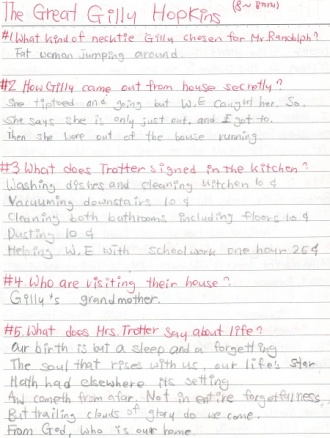 The Great Gilly Hopkins
#1 What kind of necktie Gilly chosen for Mr. Randolph?
Fat woman jumping around.
#2 How Gilly came out from house secretly?
She tiptoed and going but W.E caught her. So,
She says she is only just out, and I got to.
Then she were out of the house running.
#3 What does Trotter signed in the kitchen?
Washing dishes and cleaning kitchen 10 ¢
Vacuuming downstairs 10 ¢
Cleaning both bathrooms including floors 10 ¢
Dusting 10 ¢
Helping W.E with schoolwork one hour 25 ¢
#4 Who are visiting their house?
Gilly's grandmother.
#5 What does Mrs. Trotter say about life?
Our birth is but a sleep and a forgetting
The soul that rises with us, our life's star
Hath had elsewhere its setting
And cometh from afar. Not in entire forgetfulness,
But trailing clouds of glory do we come.
From God, who is our home.